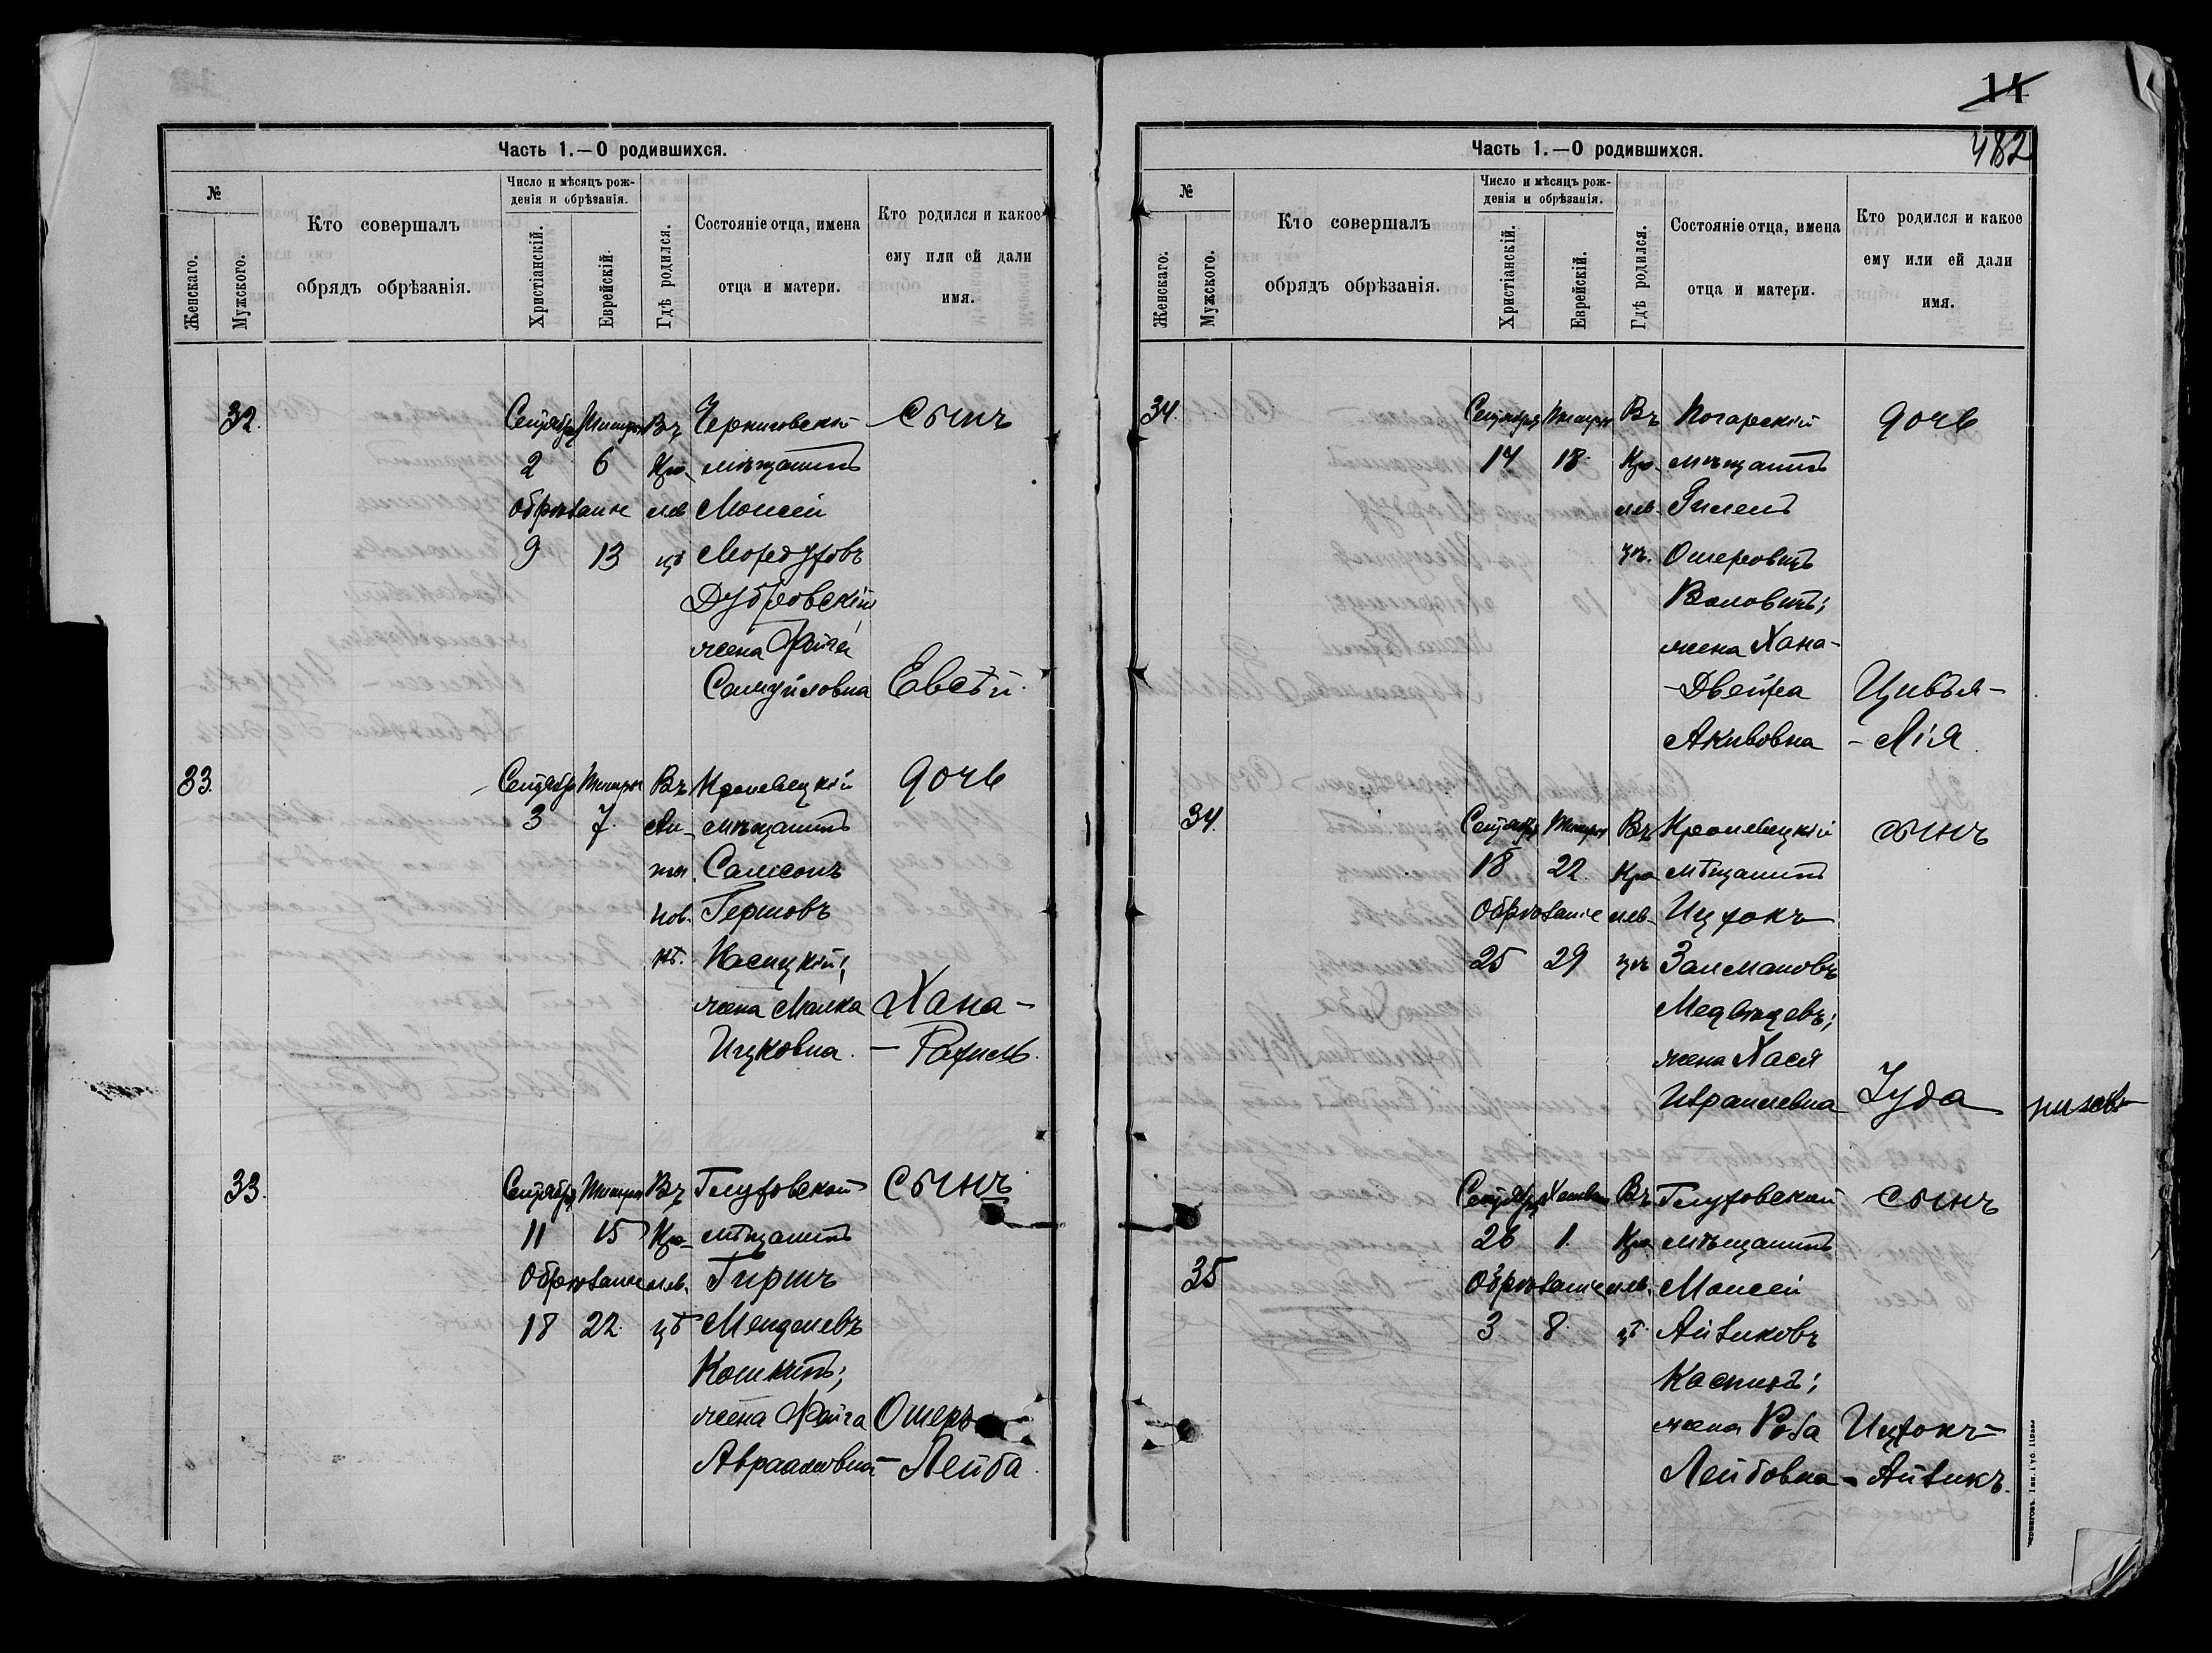 Часть 1.—О родившихся.
№
Женскаго.
Мужского.
Кто совершалъ
обрядъ обрѣзанія.
Число и мѣсяцъ рож-
денія и обрѣзанія.
Христіанскій.
Еврейскій.
Гдѣ родился.
Состояніе отца, имена
отца и матери.
Кто родился и какое
ему или ей дали
имя.
32. Сентября Тишри Въ Черниговскій сынъ
2 6 Кро- мѣщанинъ
Обрѣзаніе лев Моисей
9 13 цѣ Мордуховъ
Дубровскій
жена Файга
Самуиловна Евсѣй.
33. Сентября Тишри Въ Кролевецкій дочь
3 7. Ан- мѣщанинъ
тон. Самсонъ
нов. Гершовъ
кѣ. Насицкій;
жена Малка Хана-
Ицковна. - Рахиль.
33. Сентября Тишри Въ Глуховской сынъ
11 15 Кро- мѣщанинъ
Обрѣзаніе лев. Гиршъ
18 22. цѣ Менделевъ
Кошкинъ;
жена Файга Ошеръ
Авраамовна - Лейба.
14
482
Часть 1.—О родившихся.
№
Женскаго.
Мужского.
Кто совершалъ
обрядъ обрѣзанія.
Число и мѣсяцъ рож-
денія и обрѣзанія.
Христіанскій.
Еврейскій.
Гдѣ родился.
Состояніе отца, имена
отца и матери.
Кто родился и какое
ему или ей дали
имя.
34. Сентября Тишри Въ Погарскій дочь
14 18. Кро- мѣщанинъ
лев- Гилель
цѣ. Ошеровичъ
жена Хана-
- Двейра Цивья-
Акивовна - Лія.
34. Сентября Тишри Въ Кролевецкій сынъ
18 22. Кро мѣщанинъ
Обрѣзаніе лев- Ицхокъ
25 29 цѣ Залмановъ
Медвѣдевъ;
жена Хася
Израилевна Іуда
Сентября Хешван Въ Глуховской сынъ
26 1. Кро мѣщанинъ
35 Обрѣзаніе лев. Моисей
3 8. цѣ. Айзиковъ
жена Роза Ицхокъ-
Лейбовна - Айзикъ.